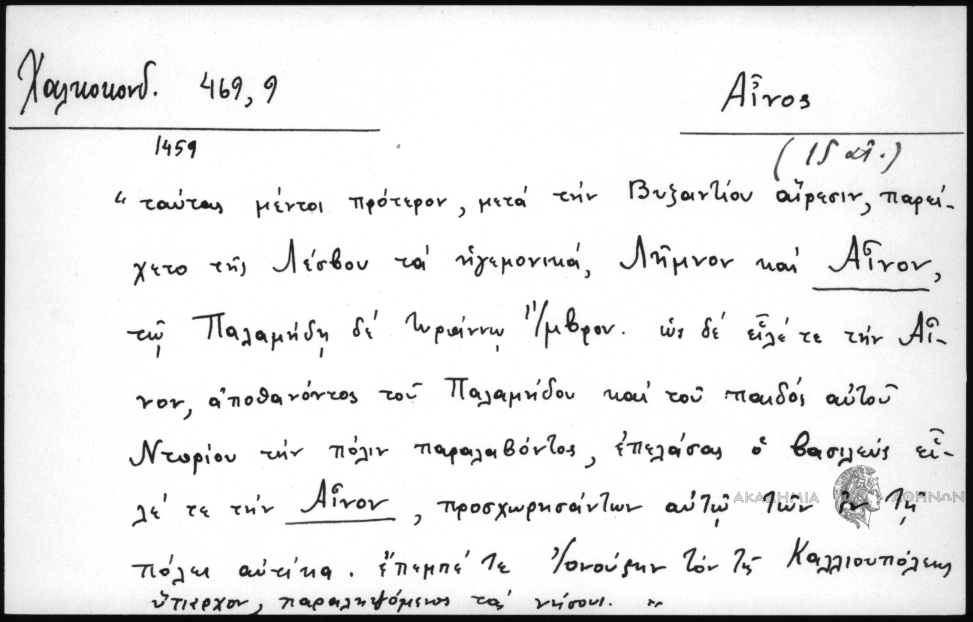 Χαλκοκονδ. 469,9
Αἶνος
1459
(15 αἰ.)
“ ταύτας μέντοι πρότερον, μετά τήν Βυζαντίου αἵρεσιν, παρεί-
χετο τῆς Λέσβου τά ἡγεμονικά, Λῆμνον καί Αἶνον,
τῷ Παλαμήδῃ δέ Ἴμβρον. ὡς δέ εἷλέ τε τήν Αἶ-
νον, ἀποθανόντος τοῦ Παλαμήδου καί τοῦ παιδός αὐτοῦ
Ντωρίου τήν πόλιν παραλαβόντος, ἐπελάσας ὁ βασιλεύς εἷ-
λέ τε τήν Αἶνον, προσχωρησάντων αὐτῷ τῶν ἐν τῇ
ΑΚΑΔΗΜΙΑ ΑΘΗΝΩΝ
πόλει αὐτίκα. ἔπεμπέ τε Ἰονούζην τόν τῆς Καλλιουπόλεως
ὕπαρχον, παραληψόμενος τάς νήσους. ”